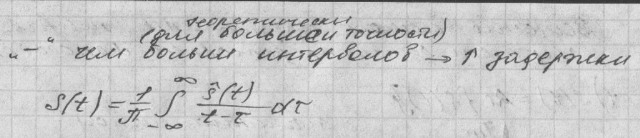 теоретически
(для большей точности)
„–“ чем больши интервалов → ↑ задержки
S(t) = 1/π ∫_{-∞}^{∞} ŝ(t)/(t-τ) dτ